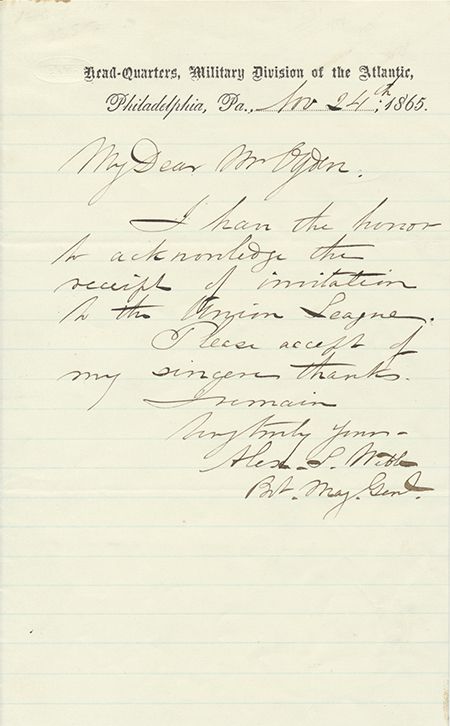 Head-Quarters, Military Division of the Atlantic,
Philadelphia, Pa., Nov 24th, 1865.
My Dear Mr Ogden.
I have the honor
to acknowledge the
receipt of invitation
to the Union League.
Please accept of
my sincere thanks.
I remain
Very truly yours-
Alex. S. Webb
Bvt. Maj. Genl.